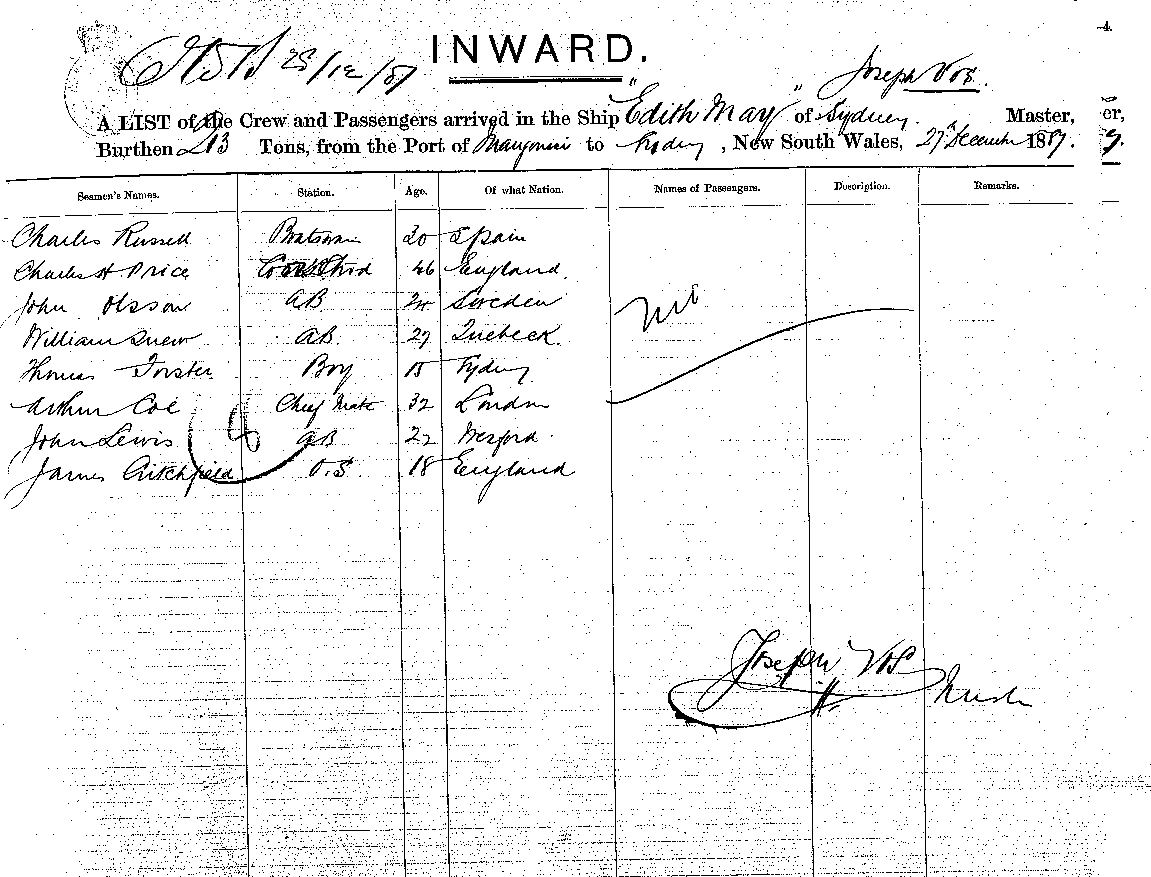 INWARD.
28/12/87
Joseph Vos.
A LIST of the Crew and Passengers arrived in the Ship "Edith May" of Sydney. Master,
Burthen 213 Tons, from the Port of Mangonui to Sydney, New South Wales, 27th December 1887.
Seamen's Names. Station. Age. Of what Nation. Names of Passengers. Description. Remarks.
Charles Russell Boatswain 30 Spain
Charles H Price Cook & Stwd 46 England
John Olsson AB 24 Sweden
William AB 27 Quebeck
Thomas Forster Boy 15 Sydney
Arthur Coe Chief Mate 32 London
John Lewis AB 22 Wexford
James Critchfield O.S. 18 England
Nil
8
Joseph Vos
Master